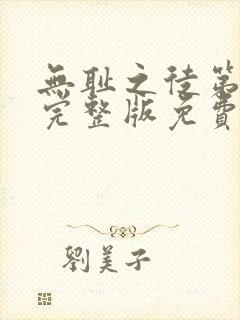 無耻之徒第
完整版免費
劉美子